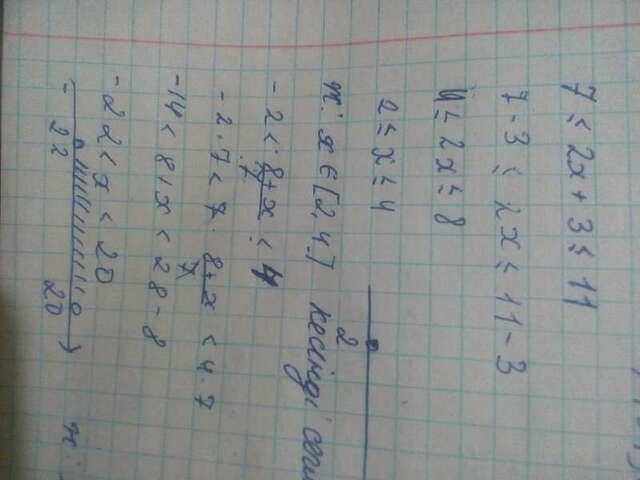 7 ≤ 2x + 3 ≤ 11
7 - 3 ≤ 2x ≤ 11 - 3
4 ≤ 2x ≤ 8
2 ≤ x ≤ 4
2
n: x ∈ [2, 4] кесінді
- 2 < 8 + x / 7 < 4
- 2 · 7 < 7 · 8 + x / 7 < 4 · 7
- 14 < 8 + x < 28 - 8
- 22 < x < 20
- 22 20 n